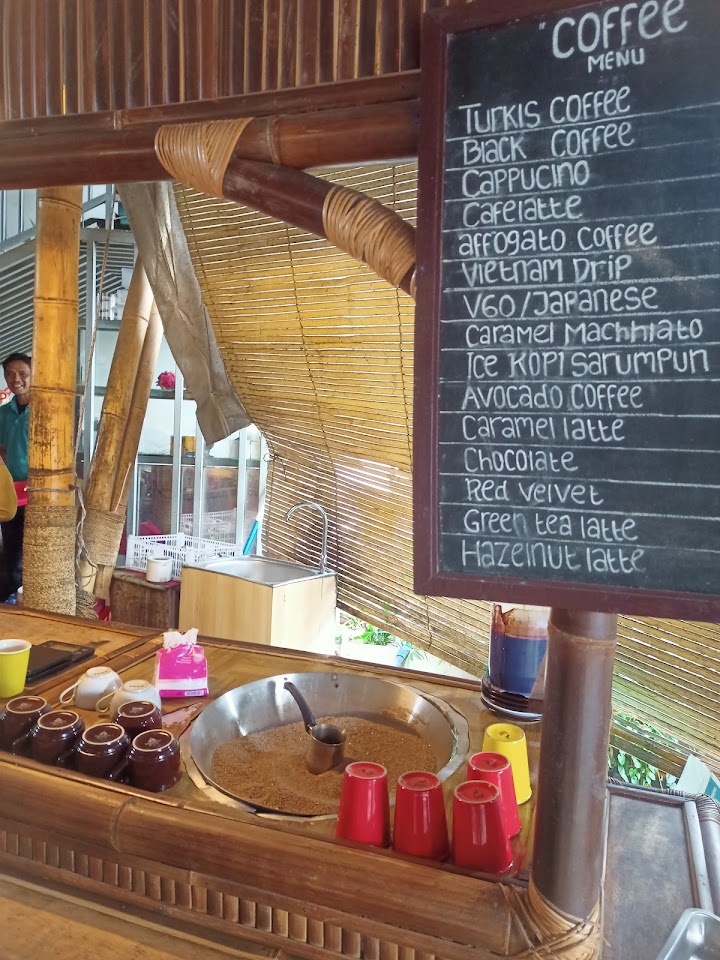 "COFFEE
MENU
TURKIS COFFEE
BLACK COFFEE
CAPPUCINO
CAFELATTE
AFFOGATO COFFEE
VIETNAM DRIP
V60/JAPANESE
CARAMEL MACHHIATO
ICE KOPI SARUMPUN
AVOCADO COFFEE
CARAMEL LATTE
CHOCOLATE
RED VELVET
GREEN TEA LATTE
HAZELNUT LATTE